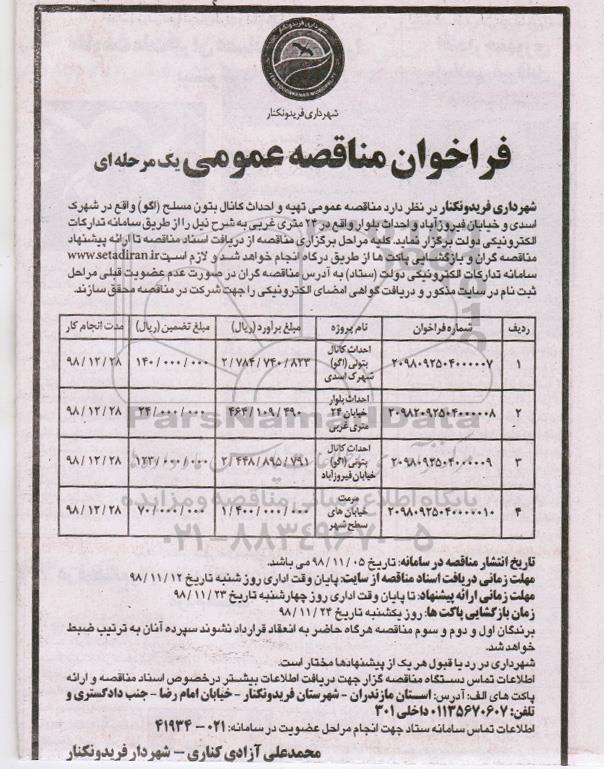 شهرداری فریدونکنار
فراخوان مناقصه عمومی یک مرحله ای
شهرداری فریدونکنار در نظر دارد مناقصه عمومی تهیه و احداث کانال بتون مسلح (اگو) واقع در شهرک
اسدی و خیابان فیروزآباد و احداث بلوار واقع در ۲۴ متری غربی به شرح ذیل را از طریق سامانه تدارکات
الکترونیکی دولت برگزار نماید. کلیه مراحل برگزاری مناقصه از دریافت اسناد مناقصه تا ارائه پیشنهاد
مناقصه گران و بازگشایی پاکت ها از طریق درگاه انجام خواهد شد و لازم است www.setadiran.ir
سامانه تدارکات الکترونیکی دولت (ستاد) به آدرس مناقصه گران در صورت عدم عضویت قبلی مراحل
ثبت نام در سایت مذکور و دریافت گواهی امضای الکترونیکی را جهت شرکت در مناقصه محقق سازند.
ردیف شماره فراخوان نام پروژه مبلغ برآورد (ریال) مبلغ تضمین (ریال) مدت انجام کار
۱ ۲۰۹۸۰۹۲۵۰۴۰۰۰۰۰۷ احداث کانال بتونی (اگو) شهرک اسدی ۲/۷۸۴/۷۴۰/۸۲۳ ۱۴۰/۰۰۰/۰۰۰ ۹۸/۱۲/۲۸
۲ ۲۰۹۸۲۰۹۲۵۰۴۰۰۰۰۰۸ احداث بلوار خیابان ۲۴ متری غربی ۴۶۴/۱۰۹/۴۹۰ ۲۴/۰۰۰/۰۰۰ ۹۸/۱۲/۲۸
۳ ۲۰۹۸۰۹۲۵۰۴۰۰۰۰۰۹ احداث کانال بتونی (اگو) خیابان فیروزآباد ۲/۴۴۸/۸۹۵/۷۹۱ ۱۲۳/۰۰۰/۰۰۰ ۹۸/۱۲/۲۸
۴ ۲۰۹۸۰۹۲۵۰۴۰۰۰۰۱۰ مرمت خیابان های سطح شهر ۱/۴۰۰/۰۰۰/۰۰۰ ۷۰/۰۰۰/۰۰۰ ۹۸/۱۲/۲۸
ParsNamadData
پایگاه اطلاع رسانی مناقصه و مزایده
۰۲۱-۸۸۳۴۹۶۷۰-۵
تاریخ انتشار مناقصه در سامانه: تاریخ ۹۸/۱۱/۰۵ می باشد.
مهلت زمانی دریافت اسناد مناقصه از سایت: پایان وقت اداری روز شنبه تاریخ ۹۸/۱۱/۱۲
مهلت زمانی ارائه پیشنهاد: تا پایان وقت اداری روز چهارشنبه تاریخ ۹۸/۱۱/۲۳
زمان بازگشایی پاکت ها: روز یکشنبه تاریخ ۹۸/۱۱/۲۴
برندگان اول و دوم و سوم مناقصه هرگاه حاضر به انعقاد قرارداد نشوند سپرده آنان به ترتیب ضبط
خواهد شد.
شهرداری در رد یا قبول هر یک از پیشنهادها مختار است.
اطلاعات تماس دستگاه مناقصه گزار جهت دریافت اطلاعات بیشتر در خصوص اسناد مناقصه و ارائه
پاکت های الف: آدرس: استان مازندران - شهرستان فریدونکنار - خیابان امام رضا - جنب دادگستری و
تلفن: ۰۱۱۳۵۶۷۰۶۰۷ داخلی ۳۰۱
اطلاعات تماس سامانه ستاد جهت انجام مراحل عضویت در سامانه: ۰۲۱-۴۱۹۳۴
محمدعلی آزادی کناری - شهردار فریدونکنار